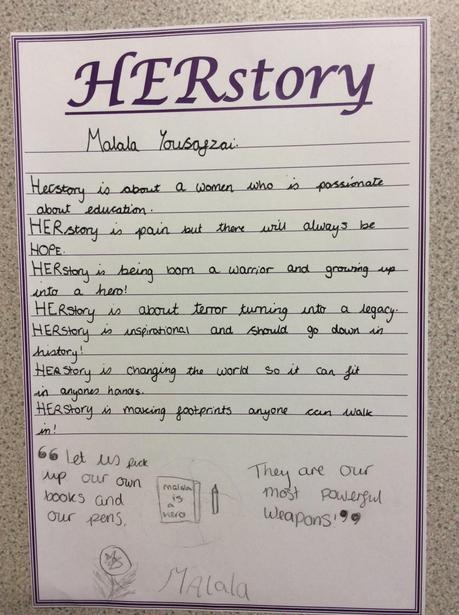 HERstory
Malala Yousafzai:
Herstory is about a women who is passionate
about education.
HERstory is pain but there will always be
HOPE.
HERstory is being born a warrior and growing up
into a hero!
HERstory is about terror turning into a legacy.
HERstory is inspirational and should go down in
history!
HERstory is changing the world so it can fit
in anyones hands.
HERstory is making footprints anyone can walk
in!
“Let us pick
up our own
books and
our pens.
malala
is
a
hero
They are our
most powerful
weapons!”
Malala